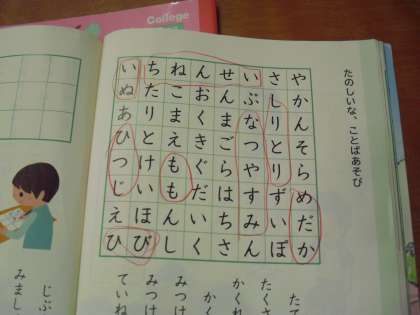 College
たのしいな、ことばあそび
やかんそらめだか
さしりとりずいぽ
いぶなつやすみん
せんまごらはちさ
んおくきぐだいく
ねこまえももんし
ちたりとけいほび
いぬあひつじえひ
たて
たくさ
かくれ
かく
みつけ
みつけ
ていね
じぶ
みまし